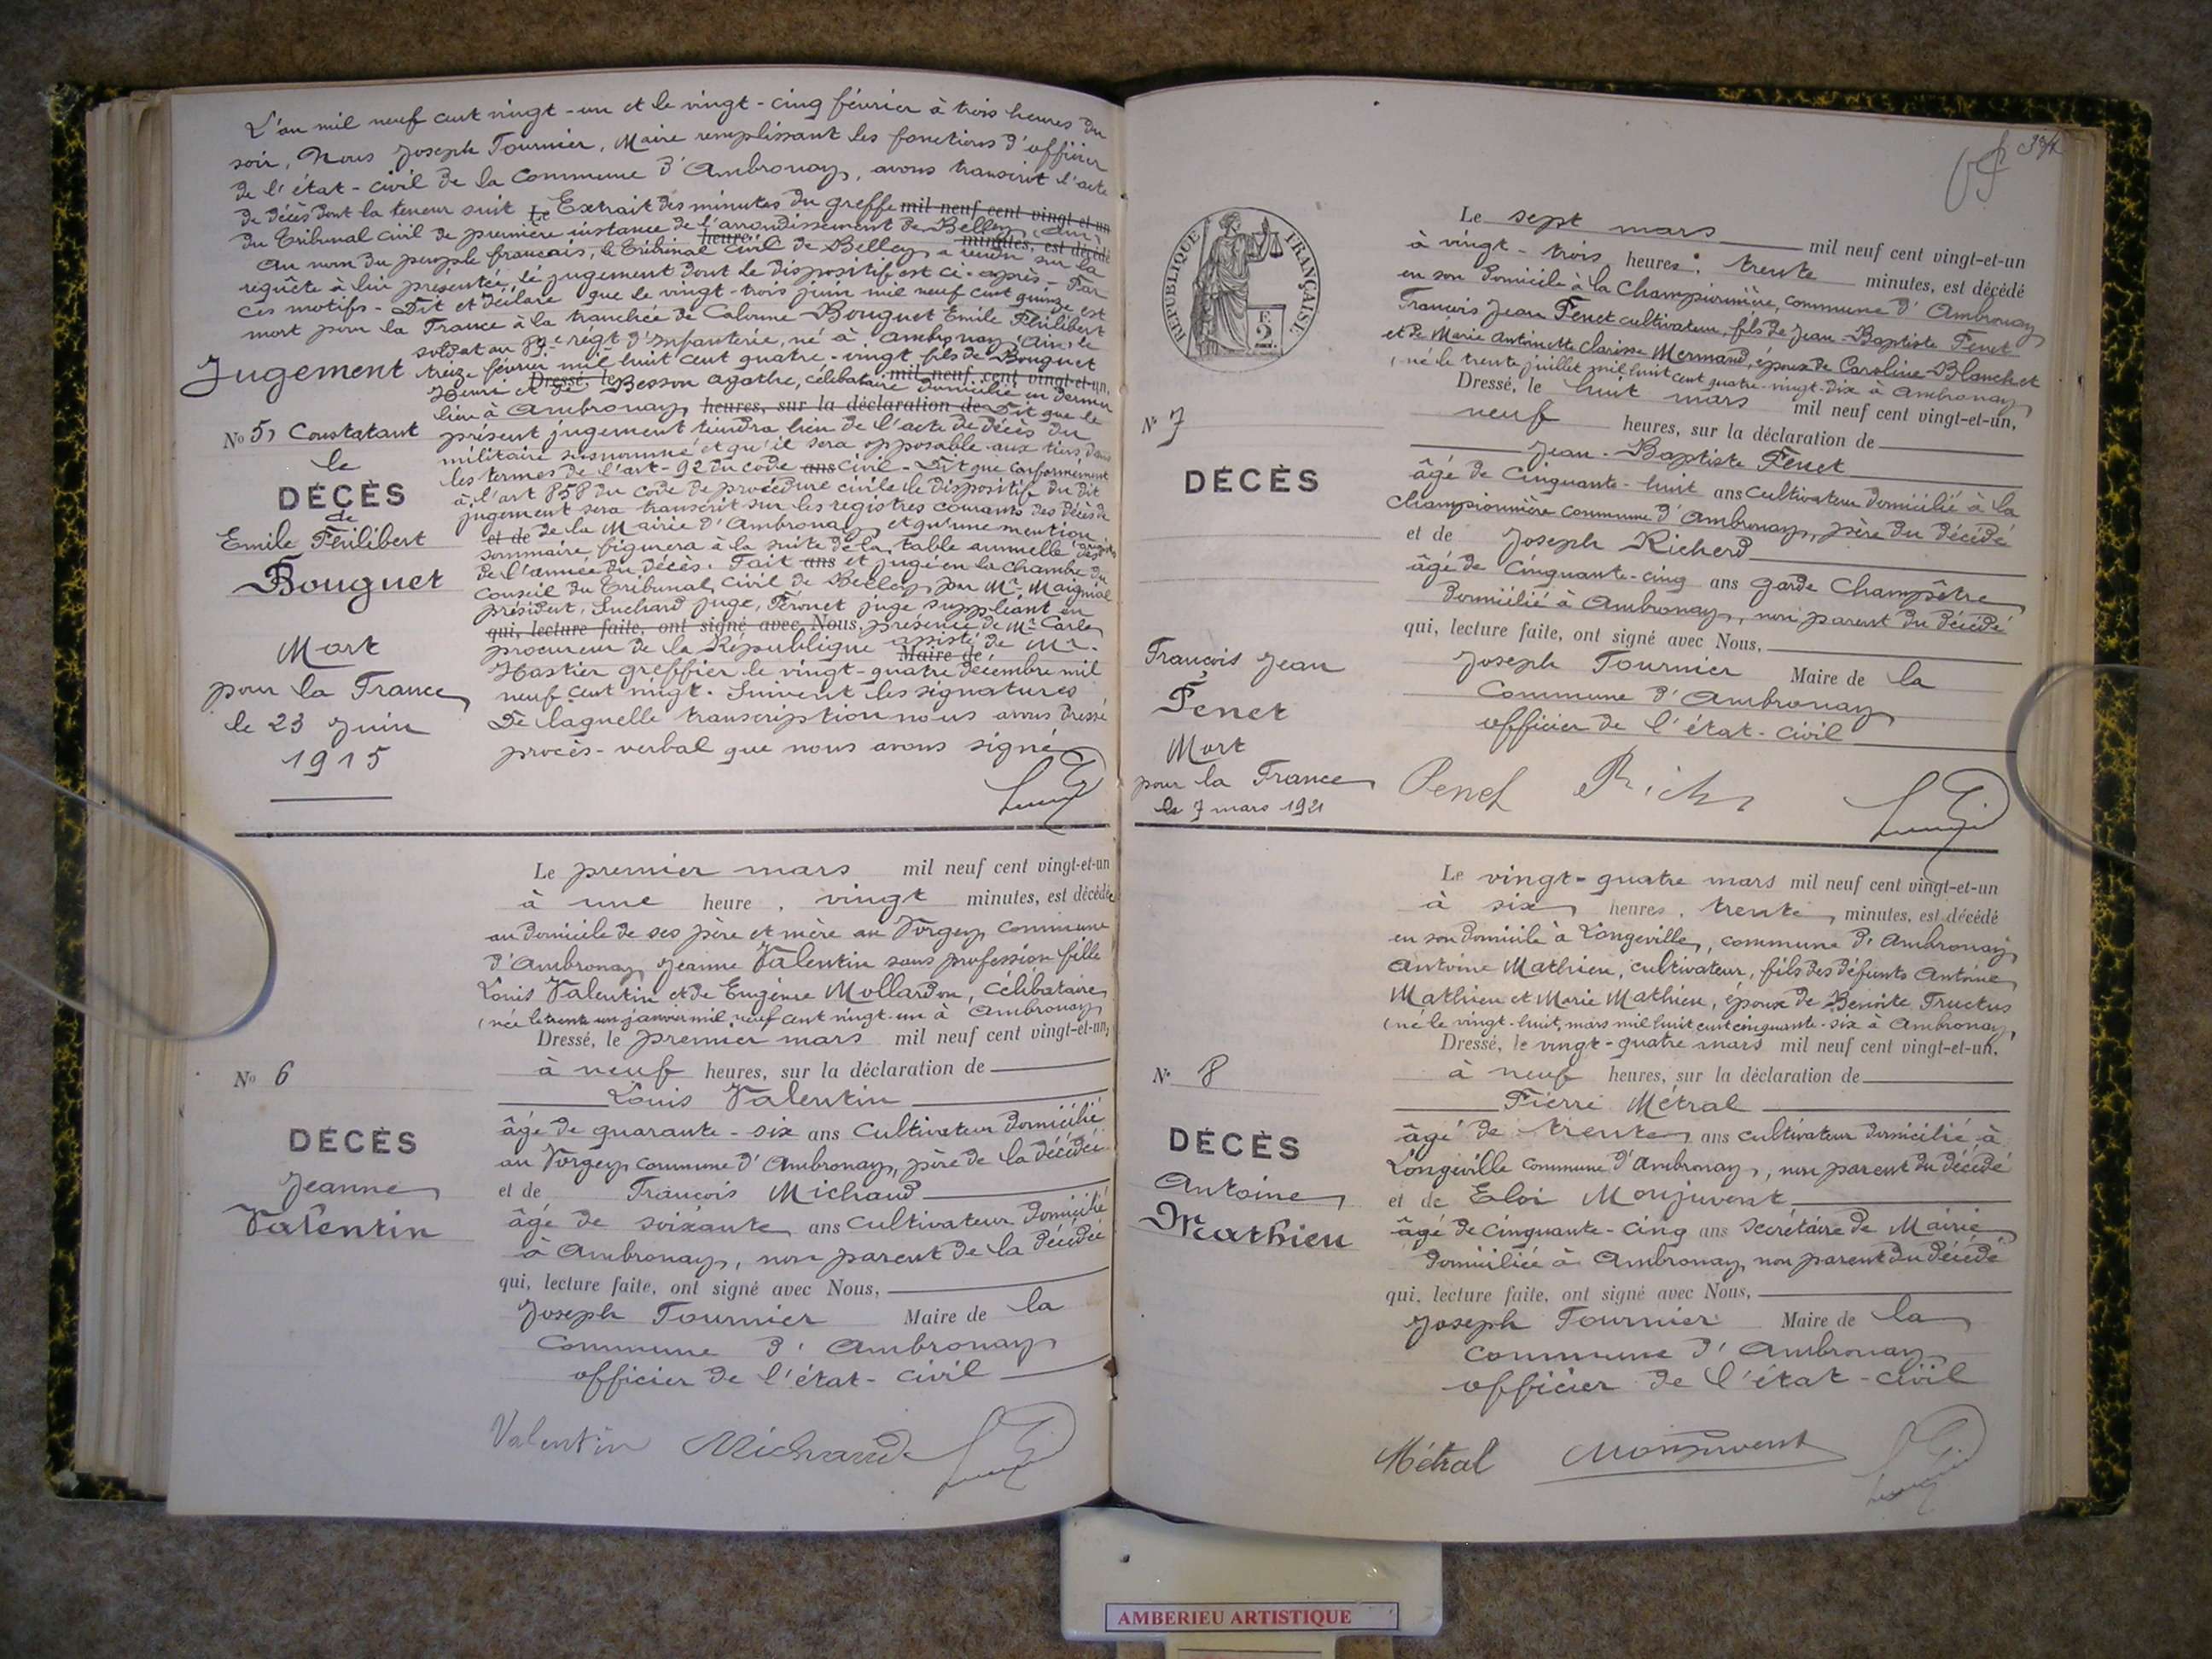 L'an mil neuf cent vingt-un et le vingt-cinq février à trois heures du
soir, Nous Joseph Tournier, Maire remplissant les fonctions d'officier
de l'état-civil de la commune d'Ambronay, avons transcrit l'acte
de décès dont la teneur suit Le Extrait des minutes du greffe mil neuf cent vingt et un
du Tribunal civil de première instance de l'arrondissement de Belley (Ain) à
heures minutes, est décédé
Au nom du peuple français, le Tribunal Civil de Belley a rendu sur la
requête à lui présentée, le jugement dont le dispositif est ci-après - Par
ces motifs - Dit et déclare que le vingt-trois juin mil neuf cent quinze est
mort pour la France à la tranchée de Calonne Bouguet Emile Philibert
soldat au régt d'Infanterie, né à Ambronay (Ain) le
Jugement treize février mil huit cent quatre-vingt fils de Bouguet
Dressé, le mil neuf cent vingt-et-un,
Henri et de Besson Agathe, célibataire domicilié en dernier
lieu à Ambronay, heures, sur la déclaration de Dit que le
No 5, Constatant présent jugement tiendra lieu de l'acte de décès du
le militaire susnommé et qu'il sera opposable aux tiers, dans
les termes de l'art-92 du code ans civil - Dit que conformément
DÉCÈS à l'art 858 du code de procédure civile le dispositif du dit
de jugement sera transcrit sur les registres courants des décès de
Emile Philibert et de de la Mairie d'Ambronay et qu'une mention
sommaire figurera à la suite de la table annuelle des
Bouguet de l'année du décès. Fait ans et jugé en la chambre du
conseil du Tribunal Civil de Belley par Mr. Maignal
président, Suchard juge, Péronet juge suppliant en
qui, lecture faite, ont signé avec Nous, présence de Mr Carle
Mort procureur de la République assisté de Mr.
Maire de
pour la France Hastier greffier le vingt-quatre décembre mil
neuf cent vingt. Suivent les signatures
le 23 Juin De laquelle transcription nous avons dressé
1915 procès-verbal que nous avons signé
Le premier mars mil neuf cent vingt-et-un
à une heure, vingt minutes, est décédée
au domicile de ses père et mère au Vorgey commune
d'Ambronay Jeanne Valentin sans profession fille
Louis Valentin et de Eugénie Mollardon, célibataire
(née le trente un janvier mil neuf cent vingt-un à Ambronay)
Dressé, le premier mars mil neuf cent vingt-et-un,
No 6 à neuf heures, sur la déclaration de
Louis Valentin
DÉCÈS âgé de quarante-six ans cultivateur domicilié
au Vorgey commune d'Ambronay, père de la décédée
Jeanne et de François Michaud
Valentin âgé de soixante ans cultivateur domicilié
à Ambronay, non parent de la décédée
qui, lecture faite, ont signé avec Nous,
Joseph Tournier Maire de la
Commune d'Ambronay
officier de l'état-civil
Valentin Michaud
RÉPUBLIQUE FRANÇAISE.
2
Le sept mars mil neuf cent vingt-et-un
à vingt-trois heures, trente minutes, est décédé
en son domicile à la Championnière, commune d'Ambronay
François Jean Penet cultivateur, fils de Jean-Baptiste Penet
et de Marie Antoinette Clarisse Mermand, époux de Caroline Blanchet
(né le trente juillet mil huit cent quatre-vingt-dix à Ambronay)
Dressé, le huit mars mil neuf cent vingt-et-un,
No 7 neuf heures, sur la déclaration de
Jean-Baptiste Penet
DÉCÈS âgé de cinquante-huit ans cultivateur domicilié à la
Championnière commune d'Ambronay, père du décédé
et de Joseph Richerd
âgé de cinquante-cinq ans garde champêtre
domicilié à Ambronay, non parent du décédé
qui, lecture faite, ont signé avec Nous,
François Jean Joseph Tournier Maire de la
Penet Commune d'Ambronay
officier de l'état-civil
Mort
pour la France Penet
le 7 mars 1921
Le vingt-quatre mars mil neuf cent vingt-et-un
à six heures, trente minutes, est décédé
en son domicile à Longeville, commune d'Ambronay
Antoine Mathieu, cultivateur, fils des défunts Antoine
Mathieu et Marie Mathieu, époux de Benoite Tructus
(né le vingt-huit mars mil huit cent cinquante-six à Ambronay)
Dressé, le vingt-quatre mars mil neuf cent vingt-et-un,
No 8 à neuf heures, sur la déclaration de
Pierre Métral
DÉCÈS âgé de trente ans cultivateur domicilié à
Longeville commune d'Ambronay, non parent du décédé
Antoine et de Eloi Monjuvent
Mathieu âgé de cinquante-cinq ans secrétaire de Mairie
domicilié à Ambronay non parent du décédé
qui, lecture faite, ont signé avec Nous,
Joseph Tournier Maire de la
Commune d'Ambronay
officier de l'état-civil
Métral Monjuvent
AMBERIEU ARTISTIQUE